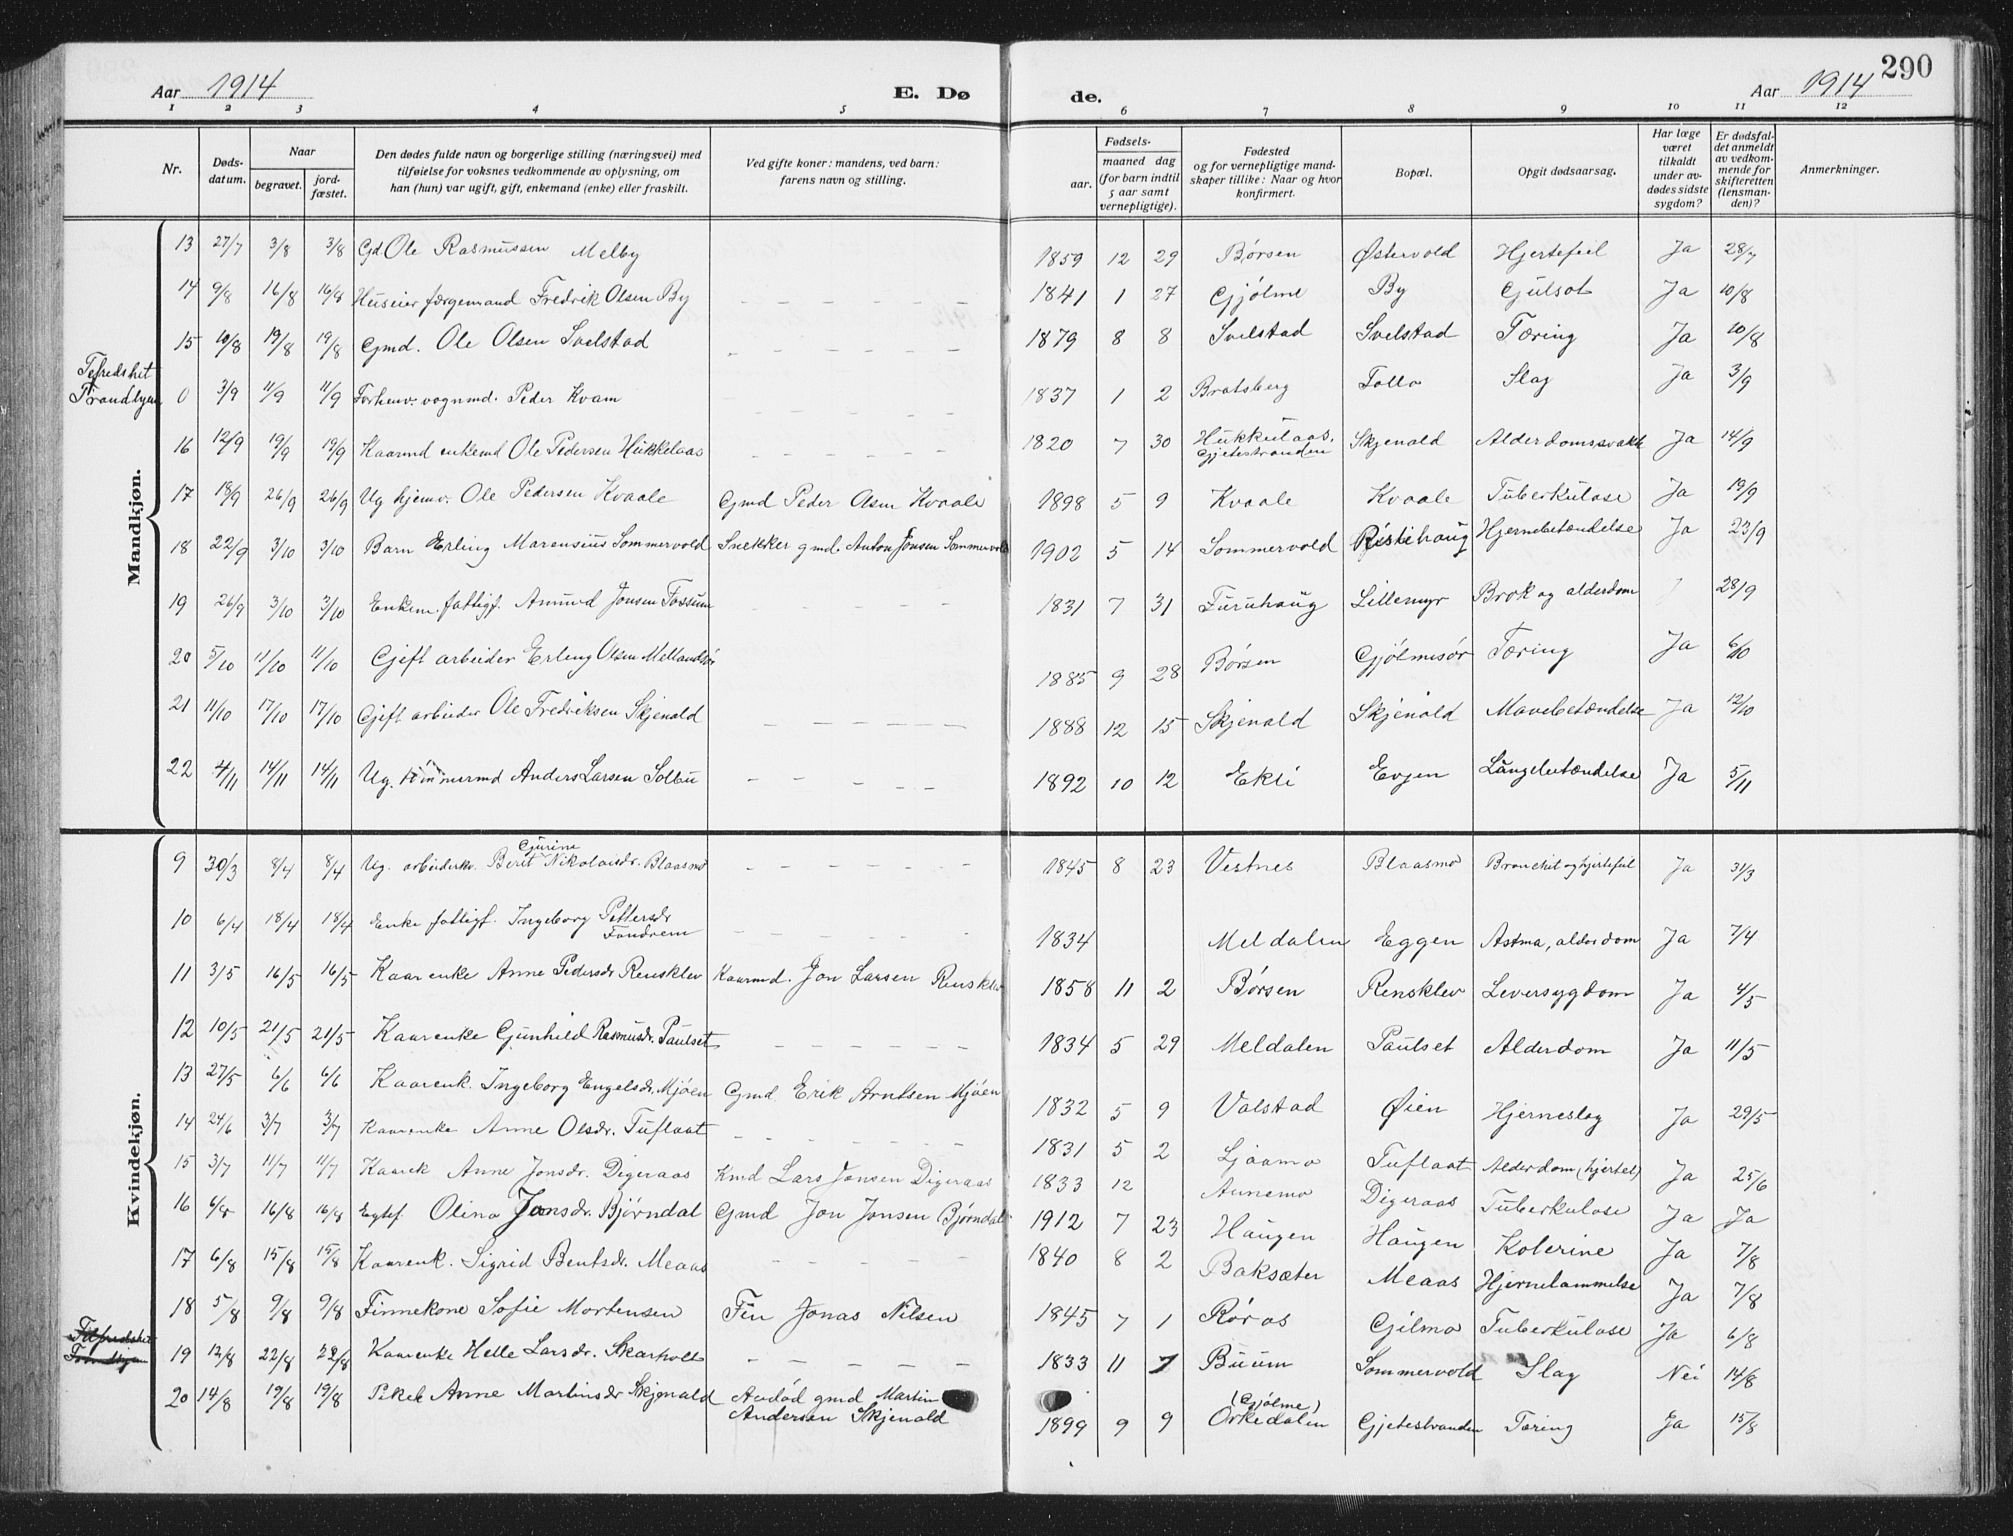 290
Aar 1914
E. Dø
de.
Aar 1914
1 2 3 4 5 6 7 8 9 10 11 12
Nr.
Døds-
datum.
Naar
begravet.
jord-
fæstet.
Den dødes fulde navn og borgerlige stilling (næringsvei) med
tilføielse for voksnes vedkommende av oplysning, om
han (hun) var ugift, gift, enkemand (enke) eller fraskilt.
Ved gifte koner: mandens, ved barn:
farens navn og stilling.
Fødsels-
aar.
maaned dag
(for barn indtil
5 aar samt
vernepligtige).
Fødested
og for vernepligtige mand-
skaper tillike: Naar og hvor
konfirmert.
Bopæl.
Opgit dødsaarsag.
Har læge
været
tilkaldt
under av-
dødes sidste
sygdom?
Er dødsfal-
det anmeldt
av vedkom-
mende for
skifteretten
(lensman-
den)?
Anmerkninger.
Mandkjøn.
13 27/7 3/8 3/8 Gd Ole Rasmussen Melby 1859 12 29 Børsen Østervold Hjertefeil Ja 28/7
14 9/8 16/8 16/8 Huseier færgemand Fredrik Olsen By 1841 1 27 Gjølme By Gulsot Ja 10/8
15 10/8 19/8 19/8 Gmd. Ole Olsen Svelstad 1879 8 8 Svelstad Svelstad Tæring Ja 10/8
0 3/9 11/9 11/9 Forhenv. vognmd. Peder Kvam 1837 1 2 Bratsberg Tollo Slag Ja 3/9
16 12/9 19/9 19/9 Kaarmd enkemd Ole Pedersen Hukkelaas 1820 7 30 Hukkulaas, Gjetestranden Skjenald Alderdomssvakh Ja 14/9
17 18/9 26/9 26/9 Ug hjemv. Ole Pedersen Kvaale Gmd Peder Olsen Kvaale 1898 5 9 Kvaale Kvaale Tuberkulose Ja 19/9
18 22/9 3/10 3/10 Barn Erling Marensius Sommervold Snekker gmd. Anton Jonsen Sommervold 1902 5 14 Sommervold Ristihaug Hjernebetændelse Ja 23/9
19 26/9 3/10 3/10 Enkem. fattigf. Amund Jonsen Fossum 1831 7 31 Furuhaug Lillemyr Brok og alderdom 28/9
20 5/10 11/10 11/10 Gift arbeider Erling Olsen Mellandsør 1885 9 28 Børsen Gjølmesør Tæring Ja 6/10
21 11/10 17/10 17/10 Gift arbeider Ole Fredriksen Skjenald 1888 12 15 Skjenald Skjenald Mavebetændelse Ja 12/10
22 4/11 14/11 14/11 Ug. tømmermd Anders Larsen Solbu 1892 10 12 Ekli Evjen Lungebetændelse Ja 5/11
Kvindekjøn.
9 30/3 8/4 8/4 Ug. arbeiderkv. Berit Gurine Nikolaisdr. Blaasmo 1845 8 23 Vestnes Blaasmo Bronchit og hjertefeil Ja 31/3
10 6/4 18/4 18/4 Enke fattigf. Ingeborg Pettersdr Fandrem 1834 Meldalen Eggen Astma, alderdom Ja 7/4
11 3/5 16/5 16/5 Kaarenke Anne Pedersdr Rensklev Kaarmd. Jon Larsen Rensklev 1858 11 2 Børsen Rensklev Leversygdom Ja 4/5
12 10/5 21/5 21/5 Kaarenke Gunhild Rasmusdr. Paulset 1834 5 29 Meldalen Paulset Alderdom Ja 11/5
13 27/5 6/6 6/6 Kaarenk. Ingeborg Engelsdr. Mjøen Gmd Erik Arntsen Mjøen 1832 5 9 Valstad Øien Hjerneslag Ja 29/5
14 24/6 3/7 3/7 Kaarenke Anne Olsdr. Tuflaat 1831 5 2 Ljøamo Tuflaat Alderdom (hjertef.) Ja 25/6
15 3/7 11/7 11/7 Kaarek Anne Jonsdr. Digeraas Kmd Lars Jonsen Digeraas 1833 12 Annemo Digeraas Tuberkulose Ja Ja
16 16/8 16/8 Egtef. Olina Jonsdr. Bjørndal Gmd Jon Jonsen Bjørndal 1912 7 23 Haugen Haugen Kolerine Ja 7/8
17 6/8 15/8 15/8 Kaarenk. Sigrid Bentsdr. Meaas 1840 8 2 Baksæter Meaas Hjernelammelse Ja 7/8
18 5/8 9/8 9/8 Finnekone Sofie Mortensen Fin Jonas Nilsen 1845 7 1 Røros Gjølmo Tuberkulose Ja 6/8
19 12/8 22/8 22/8 Kaarenke Helle Larsdr. Skarholt 1833 11 7 Buum Sommervold Slag Nei 14/8
20 14/8 19/8 19/8 Pikeb Anne Martinsdr Skjenald Avdød gmd Martin Andersen Skjenald 1899 9 9 (Gjølme) Orkedalen Gjetestranden Tæring Ja 15/8